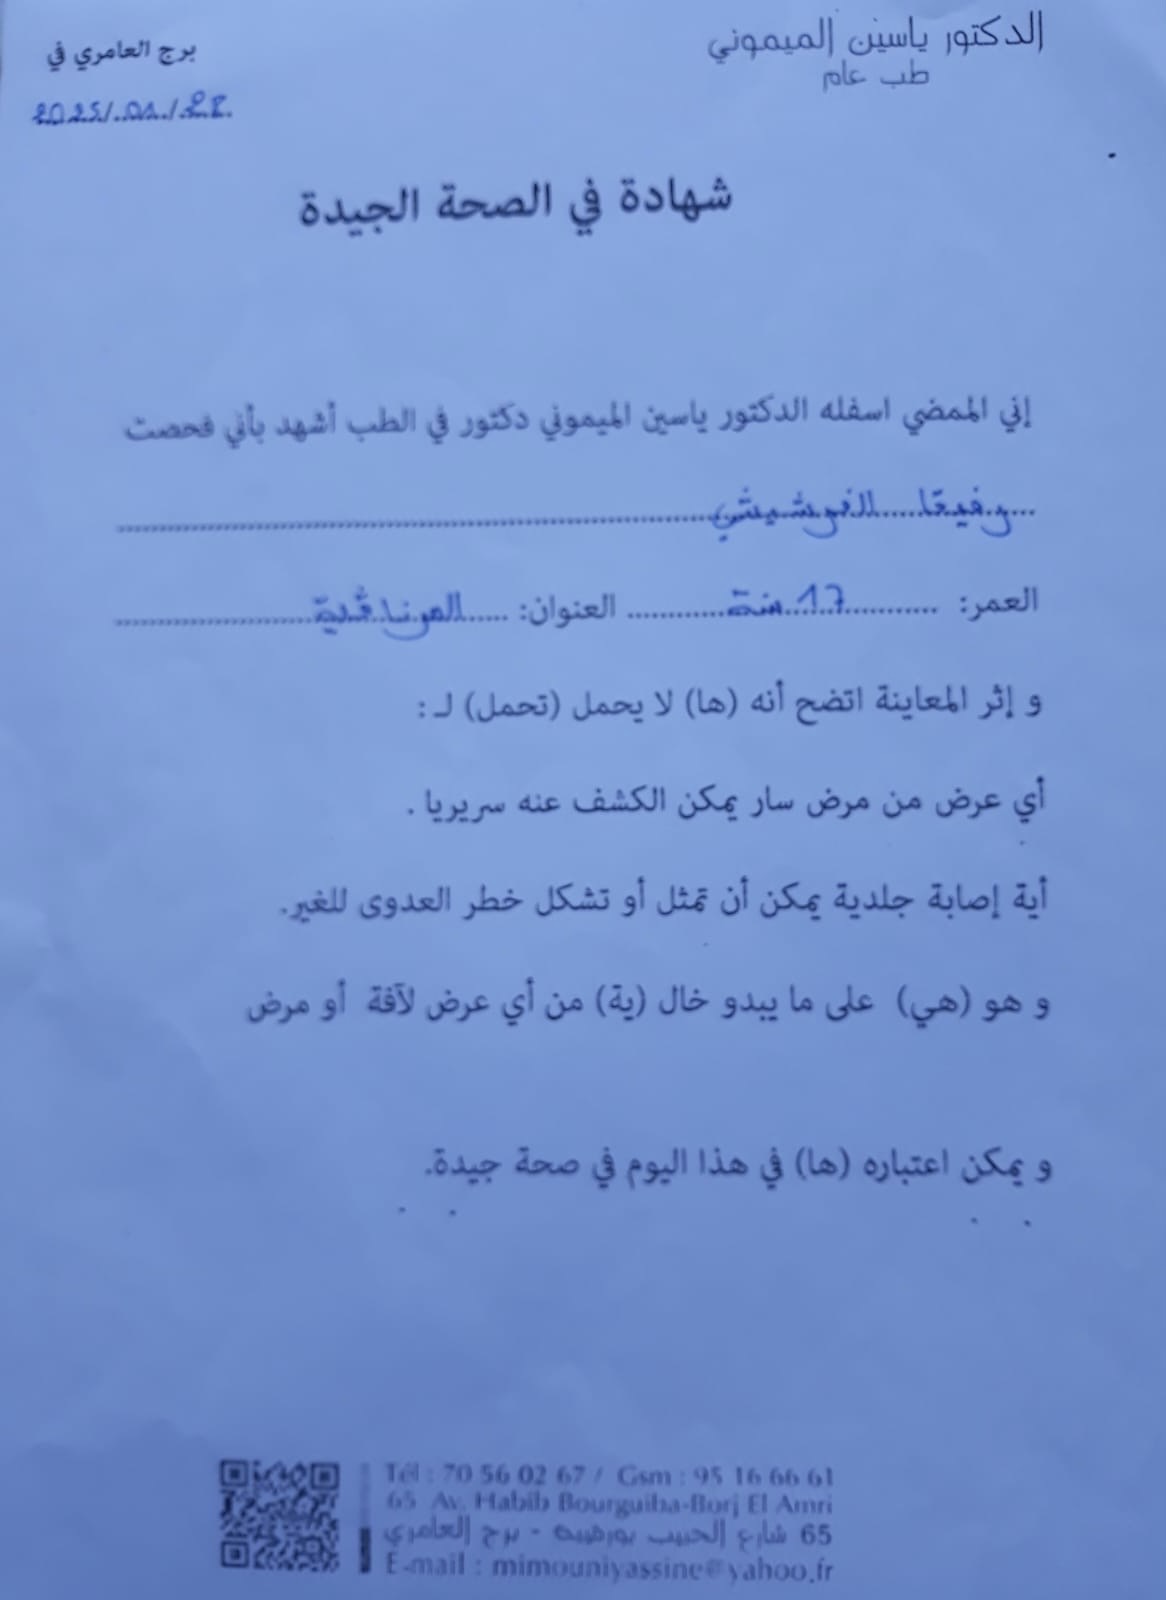 الدكتور ياسين الميموني
طب عام
برج العامري في
2025/.01./.28.
شهادة في الصحة الجيدة
إني الممضي اسفله الدكتور ياسين الميموني دكتور في الطب أشهد بأني فحصت
الفرشيشي
العمر: 17 سنة العنوان: المرناقية
و إثر المعاينة اتضح أنه (ها) لا يحمل (تحمل) لـ :
أي عرض من مرض سار يمكن الكشف عنه سريريا .
أية إصابة جلدية يمكن أن تمثل أو تشكل خطر العدوى للغير.
و هو (هي) على ما يبدو خال (ية) من أي عرض لآفة أو مرض
و يمكن اعتباره (ها) في هذا اليوم في صحة جيدة.
Tél : 70 56 02 67 / Gsm : 95 16 66 61
65 Av. Habib Bourguiba-Borj El Amri
65 شارع الحبيب بورقيبة - برج العامري
E-mail : mimouniyassine@yahoo.fr